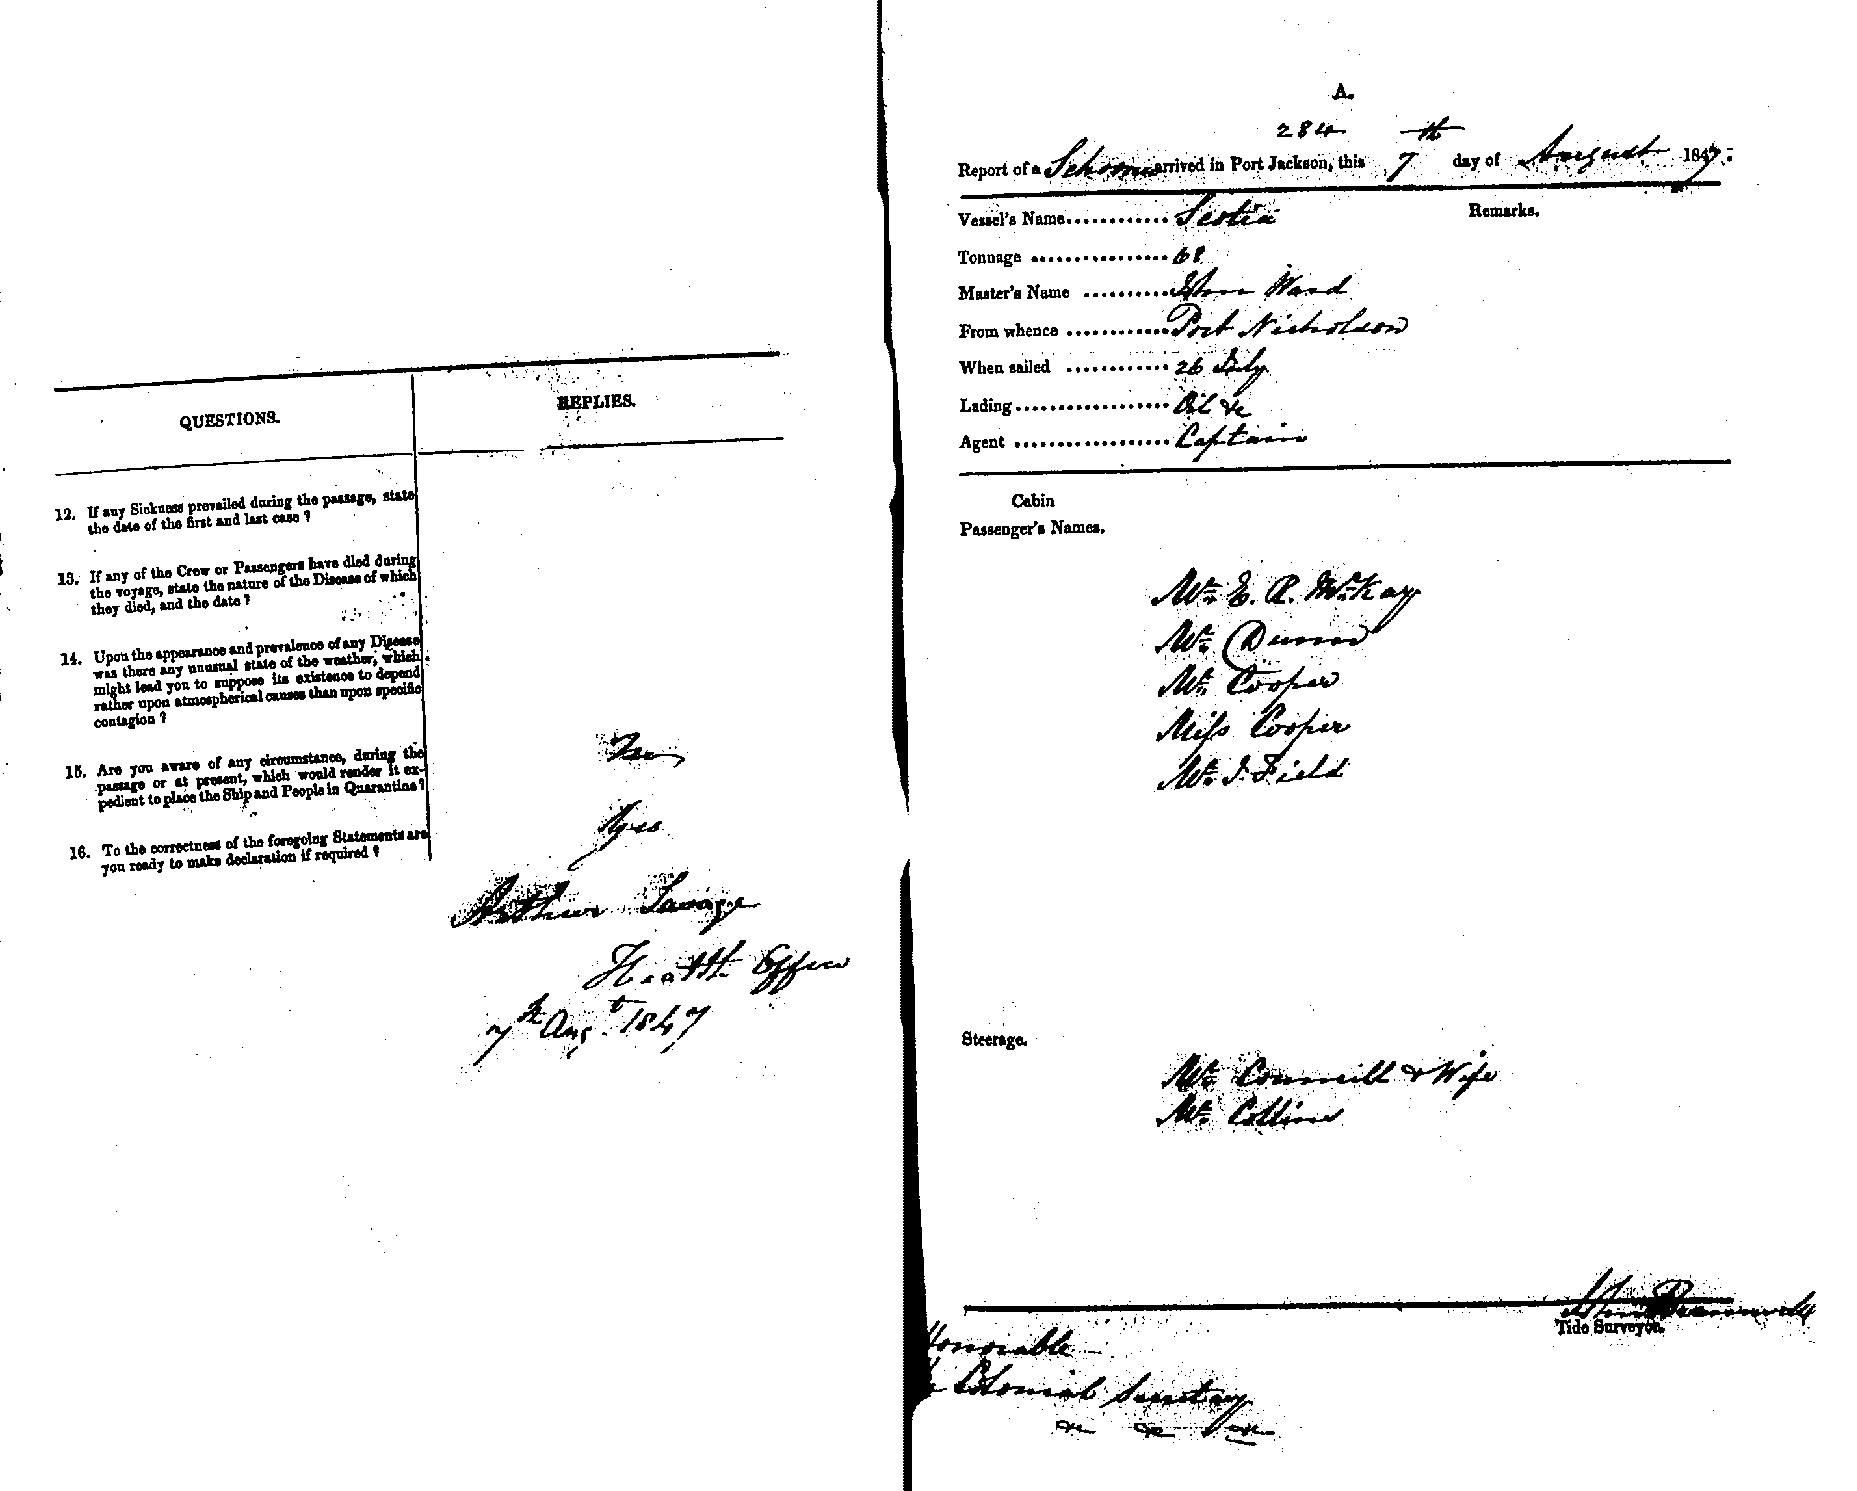 QUESTIONS.
REPLIES.
12. If any Sickness prevailed during the passage, state
the date of the first and last case ?
13. If any of the Crew or Passengers have died during
the voyage, state the nature of the Disease of which
they died, and the date ?
14. Upon the appearance and prevalence of any Disease
was there any unusual state of the weather, which
might lead you to suppose its existence to depend
rather upon atmospherical causes than upon specific
contagion ?
15. Are you aware of any circumstance, during the
passage or at present, which would render it ex-
pedient to place the Ship and People in Quarantine ?
No
16. To the correctness of the foregoing Statements are
you ready to make declaration if required ?
Yes
Arthur Savage
Health Officer
7th Augt. 1847
A.
284
Report of a Schooner arrived in Port Jackson, this 7th day of August 1847.
Vessel's Name............ Scotia
Remarks.
Tonnage ................ 68
Master's Name .......... John Ward
From whence ............ Port Nicholson
When sailed ............ 26 July
Lading.................. Oil &c
Agent .................. Captain
Cabin
Passenger's Names.
Mr. E. R. McKay
Mr. Dunn
Mr. Cooper
Miss Cooper
Mr. J. Field
Steerage.
Mr. Conneill & Wife
Mr. Collins
John Brammwell
Tide Surveyor.
Honorable
The Colonial Secretary
&c &c &c